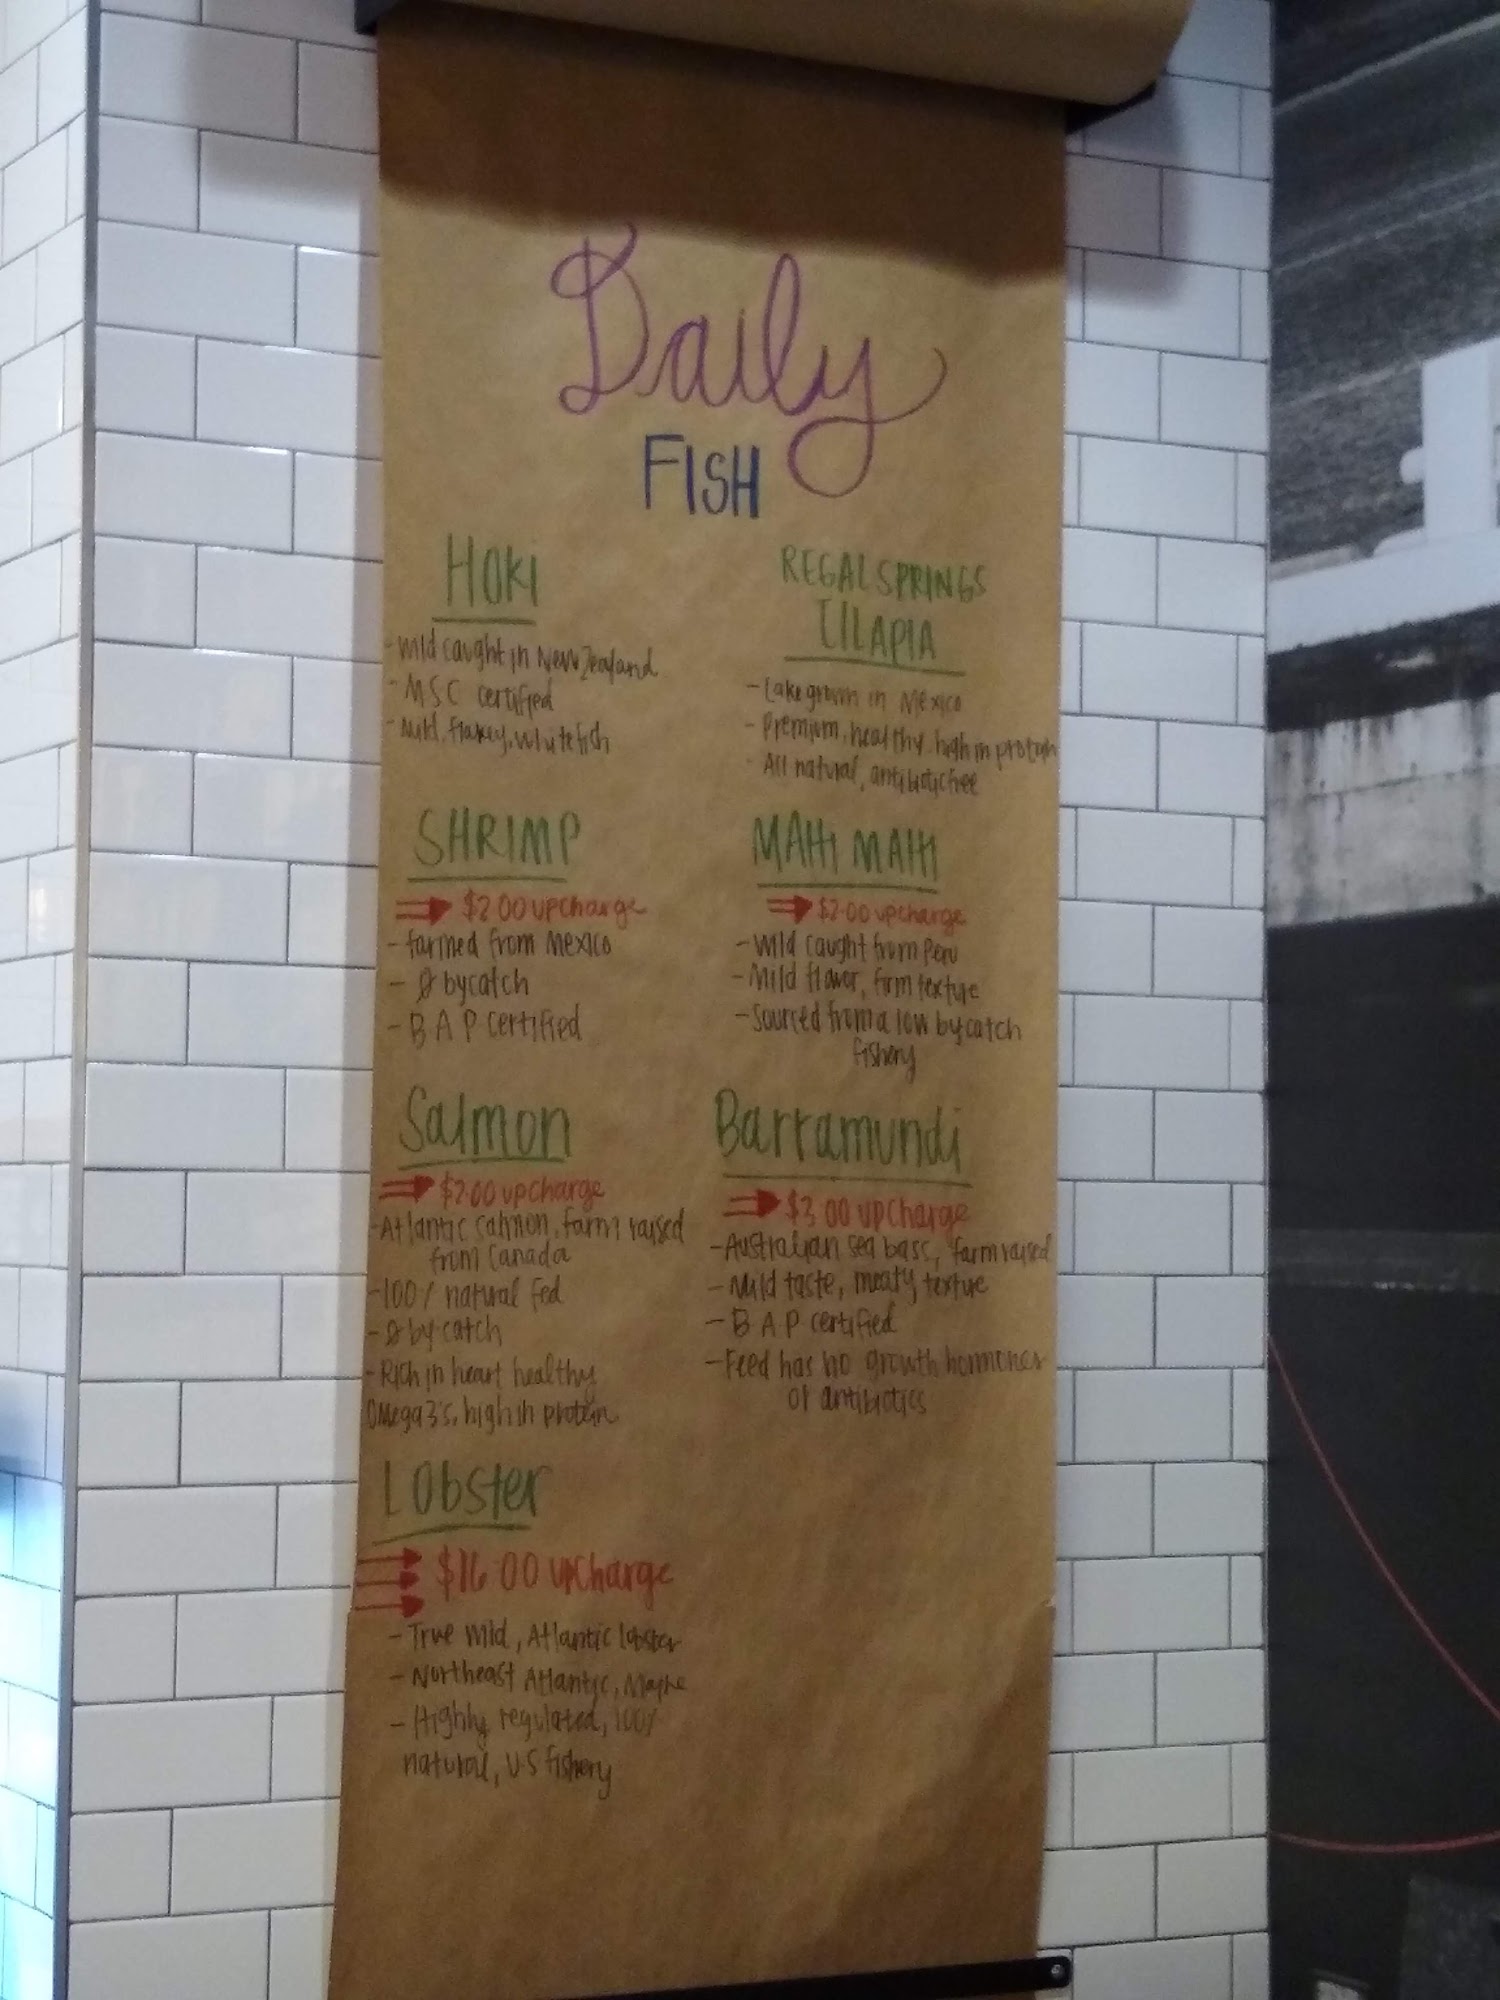 Daily
FISH
HOKI
- Wild caught in New Zealand
- MSC certified
- Mild, flakey, white fish
REGAL SPRINGS
TILAPIA
- Lake grown in Mexico
- Premium, healthy, high in protein
- All natural, antibiotic free
SHRIMP
$2.00 upcharge
- farmed from Mexico
- Ø bycatch
- B A P certified
MAHI MAHI
$2.00 upcharge
- Wild caught from Peru
- Mild flavor, firm texture
- Sourced from a low bycatch
fishery
Salmon
$2.00 upcharge
- Atlantic salmon, farm raised
from Canada
- 100% natural fed
- Ø by-catch
- Rich in heart healthy
Omega 3's, high in protein
Barramundi
$3.00 upcharge
- Australian sea bass, farm raised
- Mild taste, meaty texture
- B.A.P. certified
- Feed has no growth hormones
or antibiotics
Lobster
$16.00 upcharge
- True wild, Atlantic lobster
- Northeast Atlantic, Maine
- Highly regulated, 100%
natural, U.S fishery